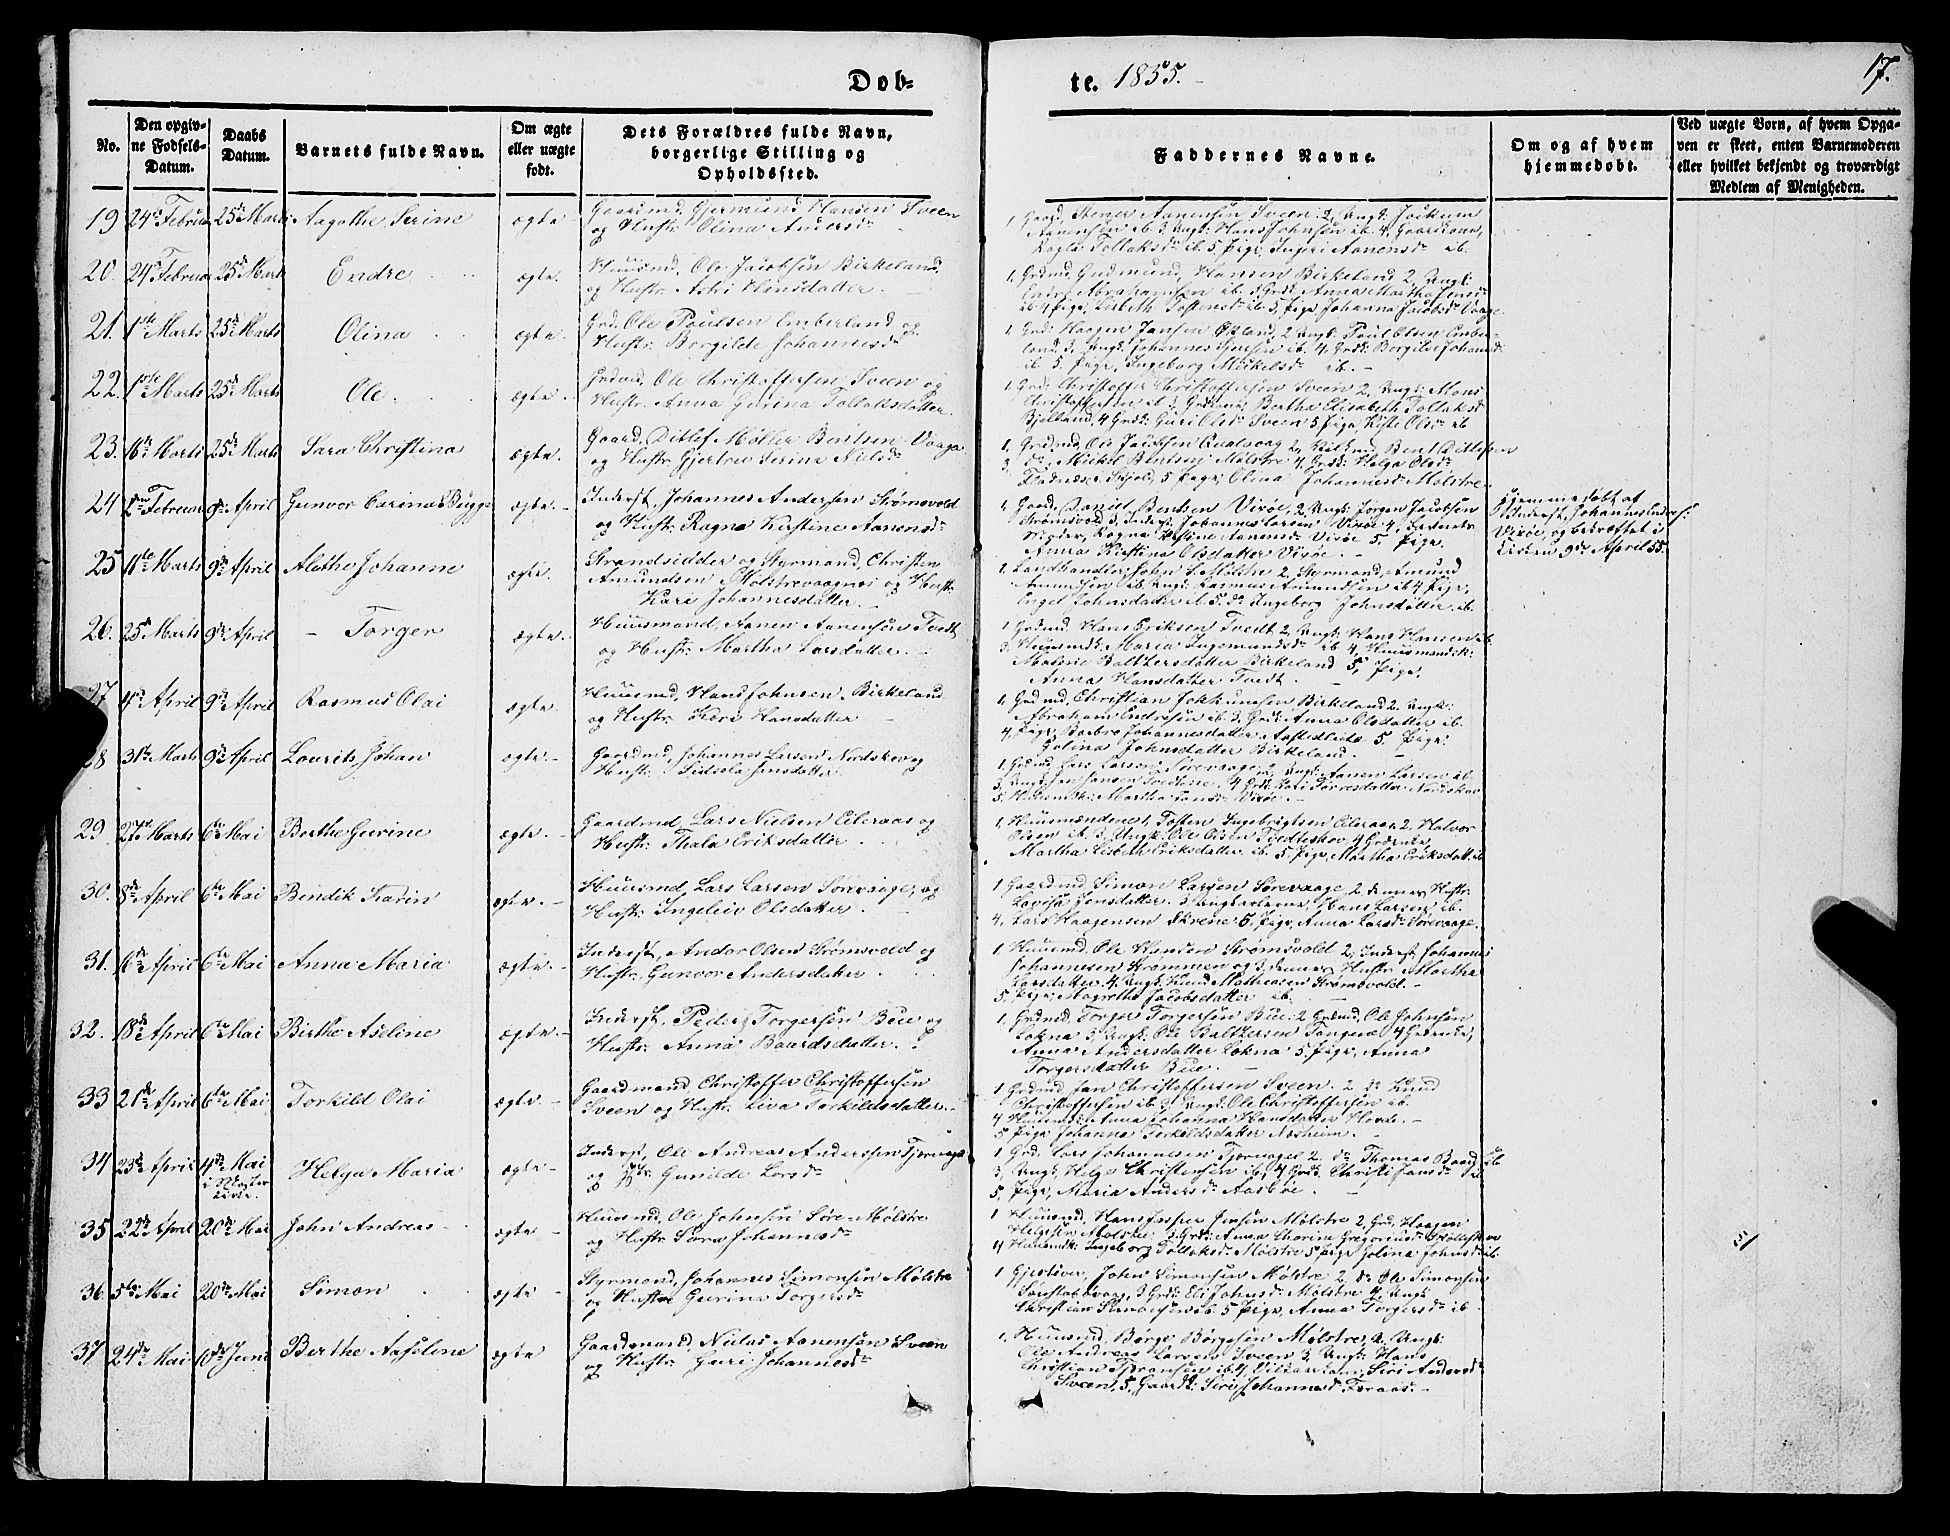 Dob-
te. 1855.
17.
No.
Den opgiv-
ne Fødsels-
Datum.
Daabs
Datum.
Barnets fulde Navn.
Om ægte
eller uægte
født.
Dets Forældres fulde Navn,
borgerlige Stilling og
Opholdssted.
Faddernes Navne.
Om og af hvem
hjemmedøbt.
Ved uægte Born, af hvem Opga-
ven er skeet, enten Barnemoderen
eller hvilket bekjendt og troværdigt
Medlem af Menigheden.
19 24de Februar 25de Marts Aagothe Serine ægte
Gaardmd. Gjermund Hansen Sveen
og Hustr. Olina Andersdr
1, Gaard. Stener Aanensen Sveen 2, Ungk: Jockum
Aanensen ib. 3 Ungk: Hans Johnsen ib. 4, Gaardkone,
Tollaksdr ib. 5, Pige, Ingeri Aanensdr ib.
20. 24de Februar 25de Marts Endre ægte.
Huusmd. Ole Jacobsen Birkeland
og Hustr. Astri Hansdatter.
1, Grdmd. Gudmund Hansen Birkeland 2, Ungk:
Endre Abrahamsen ib. 3 Grdk: Anna Martha Jensdr
ib 4 Pige, Lisbeth Tostensdr ib 5, Pige Johanna Jacobsdr Vaage
21. 1ste Marts 25de Marts Olina ægte
Grd. Ole Poulsen Emberland og
Hustr. Borgilde Johannesdr
1, Grd: Haagen Jansen Østand, 2 Ungk: Poul Olsen Ember-
land 3, Ungk: Johannes ib. 4. Grdk: Borgilde Johansdr
ib 5. Pige, Ingeborg Mickelsdr ib.
22. 1ste Marts 25de Marts Ole. ægte.
Grdmd. Ole Christoffersen Sveen og
Hustr. Anna Gurina Tollaksdatter.
1, Grd: Christoffer Christoffersen Sveen 2, Ungk: Mons
Christoffersen ib 3, Bertha Elisabeth Tollaksdr
Bjelland, 4 Grdk: Guri Olsdr Sveen 5 Pige, Kiste Olsdr ib
23. 16de Marts 25de Marts Sara Christina ægte.
Gaard. Ditlef Møller Bentsen Vaage
og Hustr. Gjertru Serina Nielsdr
1, Grdmd. Ole Jacobsen Qualvaag 2, Bent Ditlefsen
3, do, Mickel Bentsen Mølstre 4, Grdk: Helga Olsdr
Skjold, 5 Pige, Olina Johannesdr Mølstre
24 Februar 9de April Gunvor Carina Bugge ægte.
Inderst, Johannes Andersen Strømsvold
og Hustr. Ragna Kirstine Aanensdr
1, Gaard. Daniel Bentsen Visøe, 2, Ungk: Jørgen Jacobsen
Strømsvold 3, Inderst Johannes Larsen Visøe 4, Barnets
Moder, Ragna Kirstine Aanensdr Visøe 5. Pige,
Anna Kirstina Olsdatter Visøe.
Hjemmedøbt af
Inderst, Johannes Anders:
Visøe, og bekræftet i
Kirken 9de April 55.
25 11te Marts 9de April Alethe Johanne ægte.
Strandsidder og Styrmand, Christen
Amundsen Mølstrevaagnes og Hustr:
Kari Johannesdatter.
1. Landhandler John L. Mølstre 2, Styrmand, Amund
Amundsen ib. Ungk: Rasmus Amundsen ib 4, Pige,
Engel Johnsdatter ib. 5. do Ingeborg Johnsdatter ib.
26. 25de Marts 9de April Torger ægte.
Huusmand, Aanen Aanensen Tvedt
og Hustr. Martha Larsdatter.
1 Grdmd. Hans Eriksen Tvedt 2, Ungk. Hans Hansen ib
3, Huusmdk: Maria Ingemundsdr ib 4, Huusmandsk:
Malene Balthersdatter Birkeland 5, Pige,
Anna Hansdatter Tvedt.
27 4de April 9de April Rasmus Olai ægte.
Huusmd, Hans Johnsen Birkeland
og Hustr. Kari Hansdatter
1, Grdmd, Christian Jokkumsen Birkeland 2, Ungk:
Abraham Endresen ib 3, Grdk: Anna Olsdatter ib.
4, Pige, Barbro Johannesdatter 5. Pige:
Golina Johnsdatter Birkeland.
28 31te Marts 9de April Lourits Johan ægte.
Gaardmd, Johannes Larsen Nordskov og
Hustr. Sidsela Jensdatter.
1, Grdmd, Lars Larsen Sørevaage 2, Ungk: Aanen Larsen ib.
3, Ungk: Jansen Tvedtene, 4 Grdk: Kari Torresdatter Nordskov
5. Huusmdk: Martha Visøe.
29 27de Marts 6te Mai Berthe Gurine ægte.
Gaardmd, Lars Nielsen Eileraas og
Hustr: Thala Eriksdatter.
1, Huusmændene 1, Tosten Ingebrigtsen Eileraas 2, Halvor
Olsen ib 3, Ungk. Ole Olsen Tvedteskov 4 Grdkone,
Martha Lisbeth Eriksdatter ib. 5. Pige, Martha Eriksdatt: ib
30. 8de April 6te Mai Bendik Karin ægte.
Huusmd, Lars Larsen Sørevaage, og
Hustr: Ingeleiv Olsdatter.
1 Gaardmd, Simon Larsen Sørevaage, 2 dennes Hustr:
Lovisa Jensdatter. 3, Ungkarlene, Hans Larsen ib.
4, Lars Haagensen Skrene. 5, Pige, Anna Larsdr Sørevaage.
31. 6te April 6te Mai Anna Maria ægte.
Inderst, Andor Olsen Strømsvold og
Hustr. Gunvor Andersdatter.
1 Huusmd, Ole Hansen Strømsvold 2, Inderst Johannes
Johannesen Strømmen og 3, dennes Hustr: Martha
Larsdatter 4, Ungk. Knud Mathiasen Strømsvold.
5. Pige, Magrethe Jacobsdatter ib.
32. 18de April 6te Mai Birthe Aseline ægte.
Inderst, Peder Torgersen Bue og
Hustr. Anna Baardsdatter.
1, Grdmd, Torger Torgersen Bue. 2 Grdmd, Ole Johnsen
Løkna 3, Ungk. Ole Balthersen Tangnæs 4 Grdkone,
Anna Andersdatter Løkna 5, Pige, Anna
Torgersdatter Bue.
33 21de April 6te Mai Torkild Olai ægte.
Gaardmand Christoffer Christoffersen
Sveen og Hustr. Liva Torkildsdatter.
1 Grdmd, Jan Christoffersen Sveen. 2 do Knud
Christoffersen ib. 3, Ungk: Ole Christoffersen ib.
4 Huusmdk, Anna Johanna Hansdatter Hovde.
5 Pige Johanna Torkildsdatter Nesheim.
34 23de April 4de Mai
i Moster
kirke. Helga Maria ægte
Inderst, Ole Andreas Andersen Tjernagel
og Hstr Gunilde Larsdr
1 Grd. Lars Johannesen Tjernagel 2 do Thomas Baardsen ib
3, Ungk. Helge Christensen ib, 4 Grdk. Christi Jansdr ib
5, Pige, Maria Andersdr Aasbøe.
35 22de April 20de Mai John Andreas ægte.
Huusmd, Ole Johnsen Søre-Mølstre
og Hustr Sara Johannesdr
1 Huusmd, Hans Jesper Jensen Mølstre 2, Grd. Haagen
Helgesen Mølstre 3 Grdk: Anna Thorina Gregoriusdr
4 Huusmdk: Ingeborg Tollaksdr Mølstre 5 Pige Golina Johnsdr ib
36. 5te Mai 20de Mai Simon ægte
Styrmand, Johannes Simonsen Mølstre
og Hustr Gurina Torgersdr
1 Gjestgiver, John Simonsen Mølstre 2, do Ole Simonsen
3 Grdk: Eli Johnsdr Mølstre 4, Ungk:
Christian ib 5 Pige, Anna Torgersdr ib.
37 24de Mai 10de Juni Berthe Aaseline ægte
Gaardmand, Niclas Aanensen Sveen
og Hustr. Guri Johannesdr
1, Huusmd, Børge Børgesen Mølstre, 2 Ungk:
Ole Andreas Larsen Sveen 3, Ungk: Hans
Christian ib 4, Siri Andersdr
Sveen, 5, Gaardk: Siri Johannesdr Foraas.